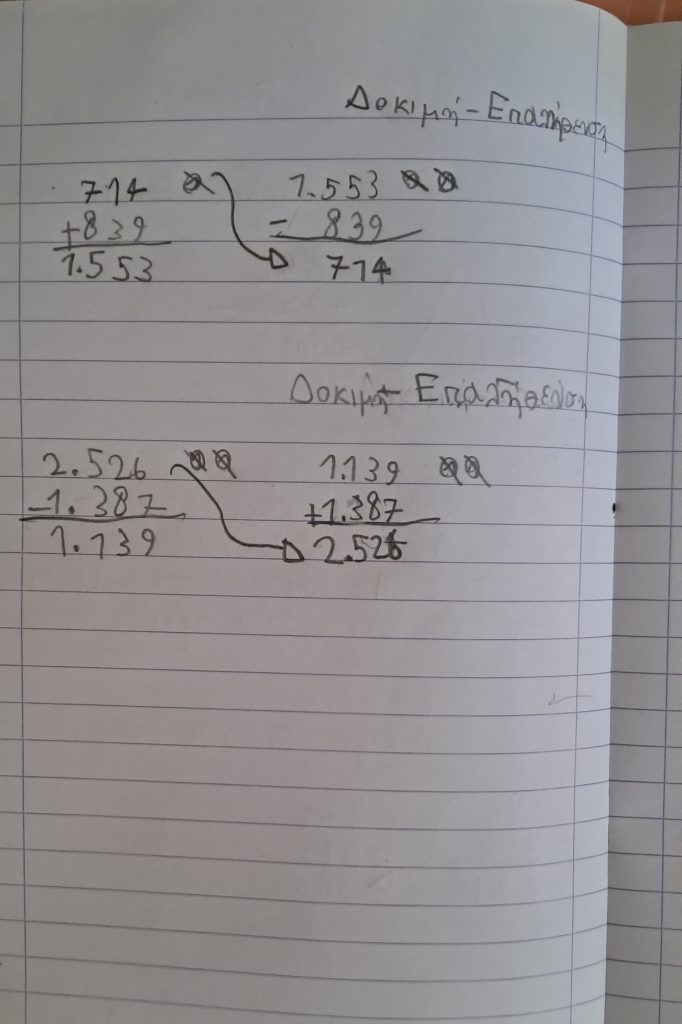 Δοκιμή - Επαλήθευση
714 1.553
+839 - 839
1.553 714
Δοκιμή - Επαλήθευση
2.526 1.139
-1.387 +1.387
1.139 2.526